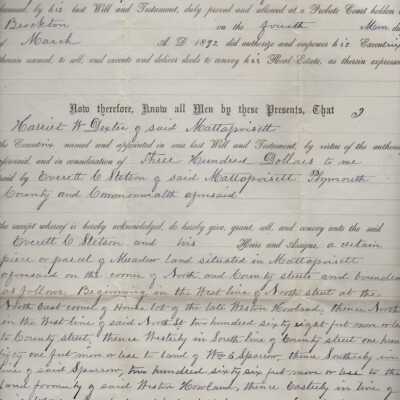 by his last Will and Testament, duly proved and allowed at a Probate Court holden
Brockton on the fourth Mon
March A. D. 1892 did authorize and empower his Executrix
therein named to sell, and execute and deliver deeds to convey his Real Estate, as therein expressed
Now therefore, Know all Men by these Presents, That I
Harriet W Dexter of said Mattapoisett
the Executrix named and appointed in said last Will and Testament, by virtue of the
and in consideration of Three Hundred Dollars to me
paid by Everett C Stetson of said Mattapoisett Plymouth
County and Commonwealth aforesaid
the receipt whereof is hereby acknowledged, do hereby give, grant, sell, and convey unto the said
Everett C Stetson and his Heirs and Assigns a certain
piece or parcel of Meadow land situated in Mattapoisett
aforesaid on the corner of North and County streets and bounded
as follows Beginning in the West line of North street at the
North East corner of House lot of the late Weston Howland, thence North
in the West line of said North St two hundred sixty eight feet more or less
to County street, thence Westerly in South line of County street one
sixty one feet more or less to land of Wm E Sparrow, thence Southerly in
line of said Sparrow, two hundred sixty six feet more or less to the
land formerly of said Weston Howland, thence Easterly in line of